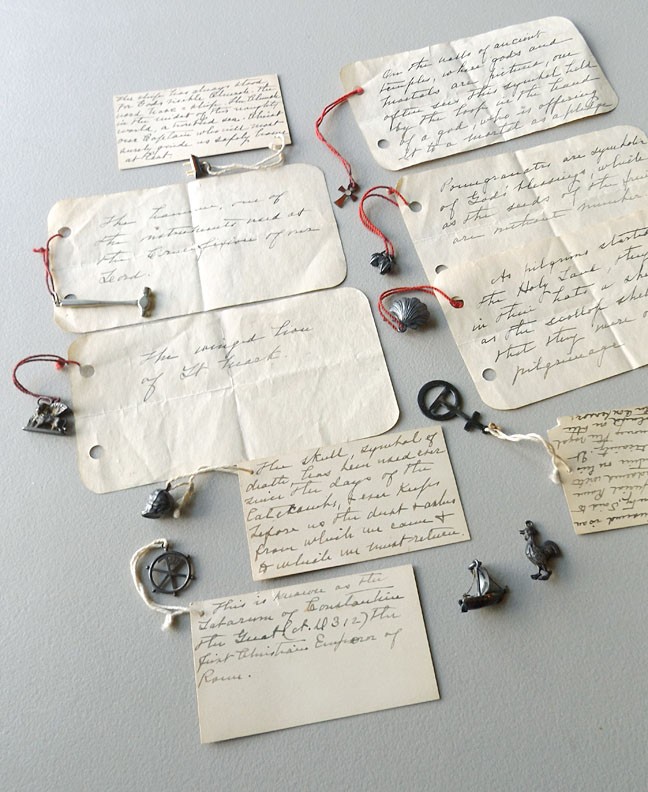 The ship has always stood
for God's
word
in the midst of this naughty
world, a
our Captain who will most
surely guide us safely home
at last.
On the walls of ancient
temples, where gods and
mortals are pictured, one
often sees this symbol held
by the loop in the hand
of a god, who is offering
it to a mortal as a
Pomegranates are symbols
of God's blessings, which
as the seeds of the
are without number
The hammer, one of
the instruments used at
the Crucifixion of our
Lord.
As pilgrims started
the Holy Land, they
in their hats a
as the scollop
that they were
pilgrimage
The winged lion
of St Mark.
The skull, symbol of
death, has been used ever
since the days of the
Catacombs, & ever keeps
before us the dust & ashes
from which we came &
to which we must return.
This is known as the
Labarum of Constantine
the Great (A.D 312) the
first Christian Emperor of
Rome.